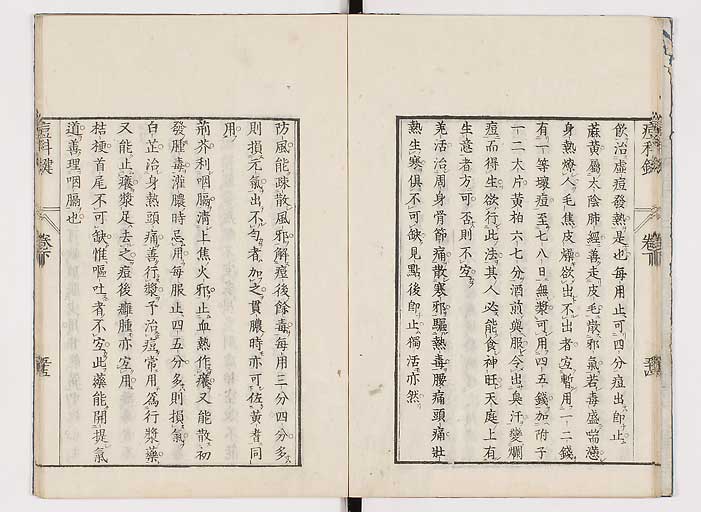 痘科鍵 卷下
飲治虛痘發熱是也每用止可四分痘出即止
蔴黃屬太陰肺經善走皮毛散邪氣若毒盛喘懣
身熱燎人毛焦皮燥欲出不出者宜暫用一二錢
有一等壞痘至七八日無漿可用四五錢加附子
一二大片黃柏六七分酒煎與服令出臭汗變爛
痘而得生欲行此法其人必能食神旺天庭上有
生意者方可否則不宜
羌活治周身骨節痛散寒邪驅熱毒腰痛頭痛壯
熱生寒俱不可缺見點後即止獨活亦然
防風能疎散風邪解痘後餘毒每用三分四分多
則損元氣出不勻者加之貫膿時亦可佐黃耆同
用
荊芥利咽膈清上焦火邪止血熱作癢又能散初
發腫毒灌膿時忌用每服止四五分多則損氣
白芷治身熱頭痛善行漿予治痘常用爲行漿藥
又能止癢漿足去之痘後癰腫亦宜用
桔梗首尾不可缺惟嘔吐者不宜此藥能開提氣
道善理咽膈也
痘科鍵 卷下